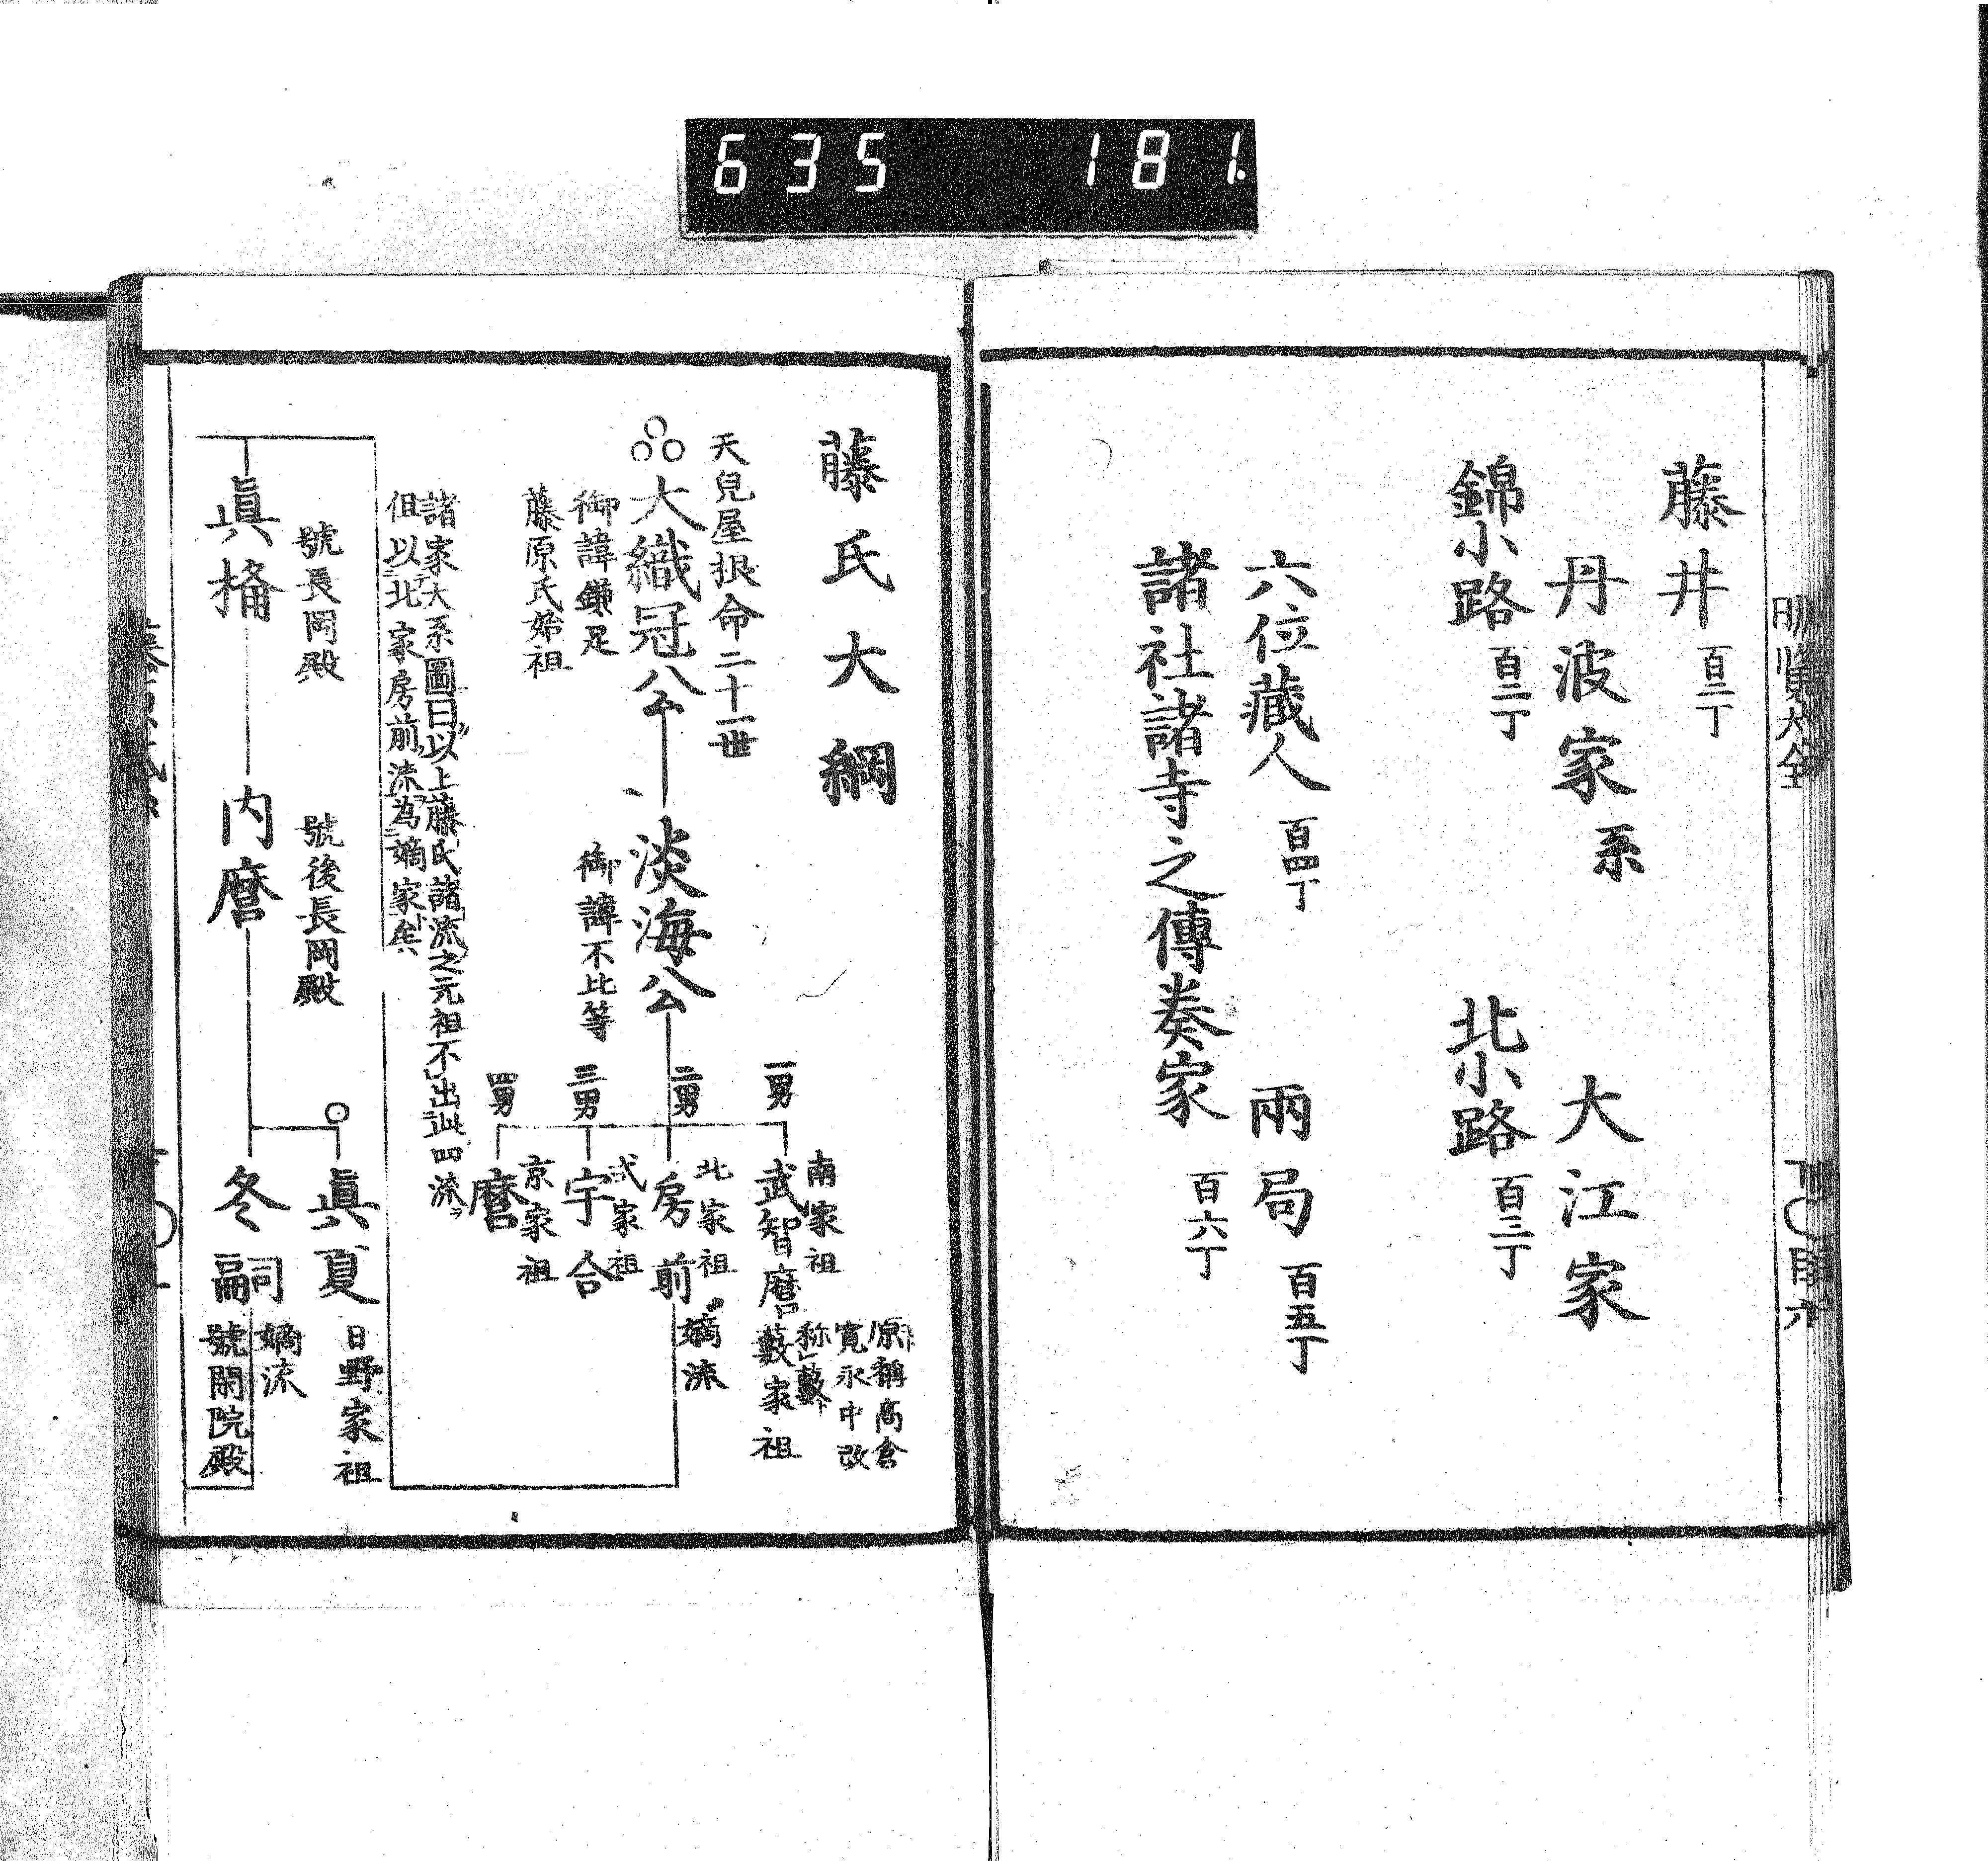 635 181.
明覧大全
藤井 百二丁
丹波家系 大江家
錦小路 百二丁 北小路 百三丁
六位藏人 百四丁 兩局 百五丁
諸社諸寺之傳奏家 百六丁
藤氏大綱
天兒屋根命二十一世
大織冠公 淡海公
御諱鎌足 御諱不比等
藤原氏始祖
一男 南家祖 武智麿 藪家祖
原稱高倉
寛永中改
称藪ト
二男 北家祖 房前 嫡流
三男 式家祖 宇合
四男 京家祖 麿
諸家大系圖曰以上藤氏諸流之元祖不出此四流ヲ
但以北家房前流為嫡家矣
號長岡殿 號後長岡殿
眞楯 内麿
眞夏 日野家祖
冬嗣 嫡流 號閑院殿